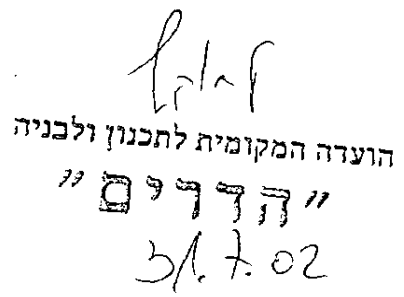 הועדה המקומית לתכנון ולבניה
"הדרים"
31.7.02